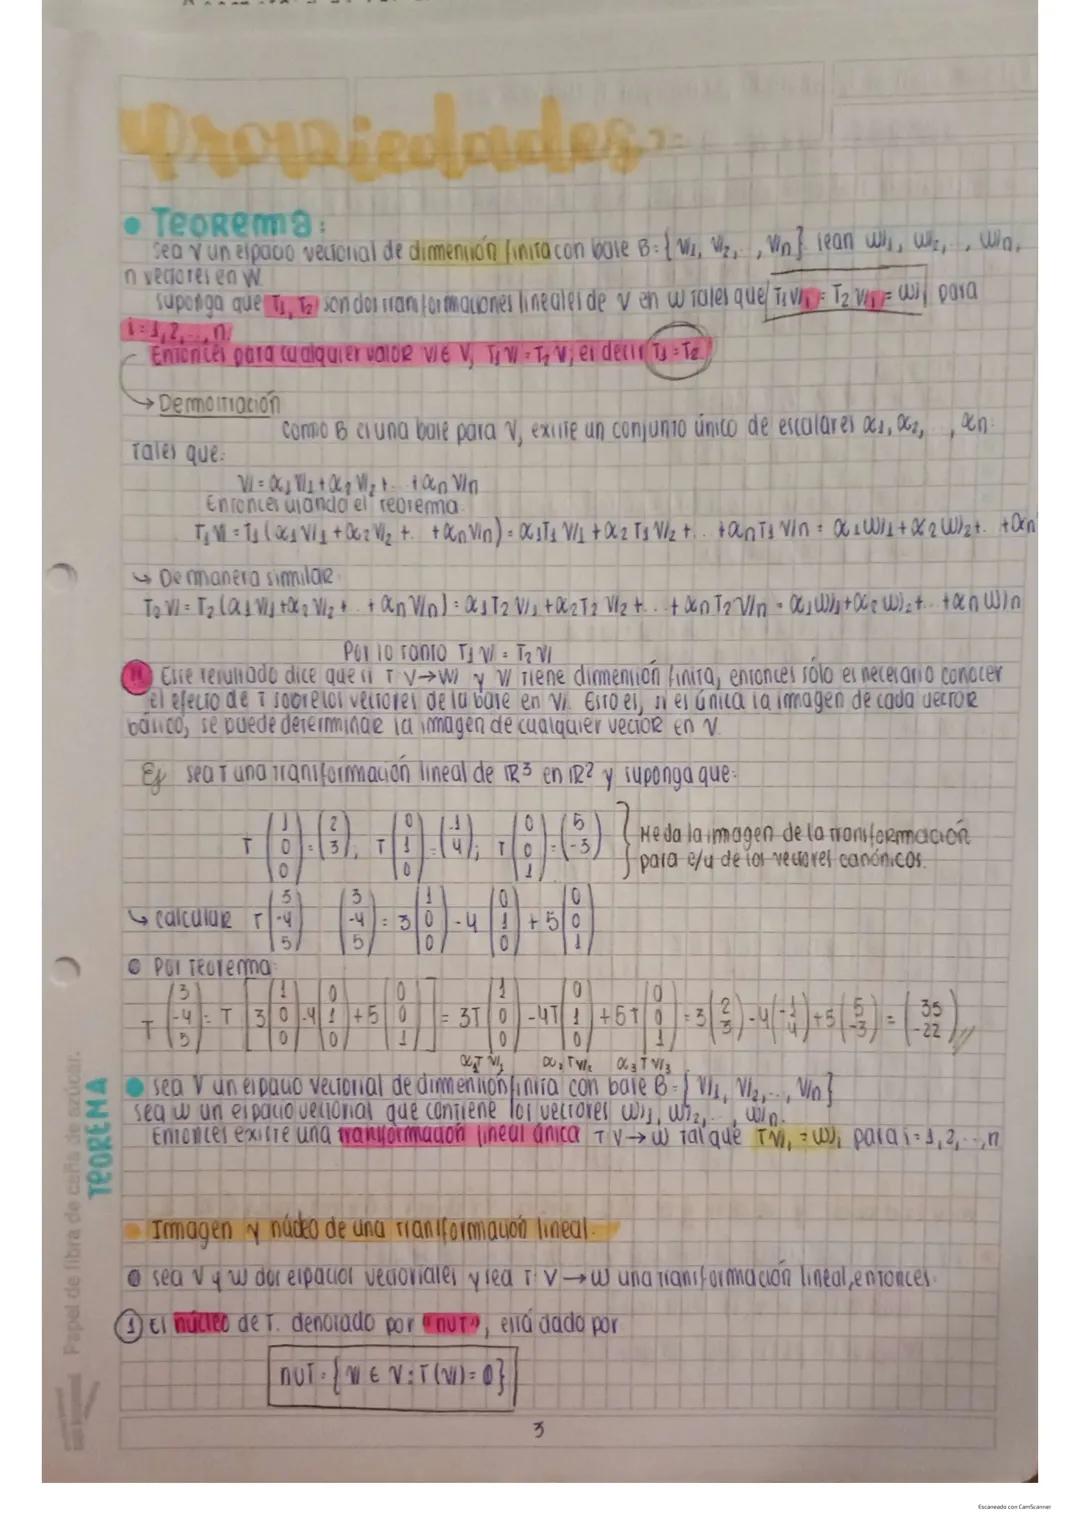 Propiedades:
• Teorema:
Sea V un espacio vectorial de dimensión finita con base B={v₁, v₂, .., vₙ} sean w₁, w₂, .., wₙ,
n vectores en W.
suponga que T₁, T₂ son dos transformaciones lineales de V en W tales que T₁v₁ = T₂v₁ = wᵢ para
i=1,2,..,n.
Entonces para cualquier valor v∈V, T₁v = T₂v, es decir T₁=T₂
→ Demostración
Como B es una base para V, existe un conjunto único de escalares α₁, α₂, .., αn:
Tales que:
v = α₁v₁+α₂v₂+..+αnvn
Entonces usando el teorema
T₁v = T₁(α₁v₁+α₂v₂+..+αnvn) = α₁T₁v₁+α₂T₁v₂+..+αnT₁vn = α₁w₁+α₂w₂+..+αn
↳ De manera similar
T₂v = T₂(α₁v₁+α₂v₂+..+αnvn) = α₁T₂v₁+α₂T₂v₂+..+αnT₂vn = α₁w₁+α₂w₂+..+αnwn
Por lo tanto T₁v = T₂v
Este resultado dice que si T V→W y V tiene dimensión finita, entonces sólo es necesario conocer
el efecto de T sobre los vectores de la base en V. Esto es, si es única la imagen de cada vector
básico, se puede determinar la imagen de cualquier vector en V
Ej sea T una transformación lineal de ℝ3 en ℝ2 y suponga que:
T(1 0 0)=(2 3), T(0 1 0)=(-1 4); T(0 0 1)=(5 -3) } Me da la imagen de la transformación
para c/u de los vectores canónicos.
↳ calcular T(3 -4 5) (3 -4 5) = 3(1 0 0) -4(0 1 0) +5(0 0 1)
Por Teorema:
T(3 -4 5) = T[3(1 0 0) -4(0 1 0) +5(0 0 1)] = 3T(1 0 0) -4T(0 1 0) +5T(0 0 1) = 3(2 3) -4(-1 4) +5(5 -3) = (35 -22)
α₁Tv₁ α₂Tv₂ α₃Tv₃
TEOREMA
• sea V un espacio vectorial de dimensión finita con base B={v₁, v₂, .., vn}
sea w un espacio vectorial que contiene los vectores w₁, w₂, .., wn.
Entonces existe una transformación lineal única T V→W tal que Tvᵢ = wᵢ para i=1,2,..,n
• Imagen y núcleo de una transformación lineal.
sea V y W dos espacios vectoriales y sea T: V→W una transformación lineal, entonces:
① El núcleo de T. denotado por "nuT", está dado por
nuT={v ∈ V: T(v)=0}
3
Papel de fibra de caña de azúcar.
Escaneado con CamScanner